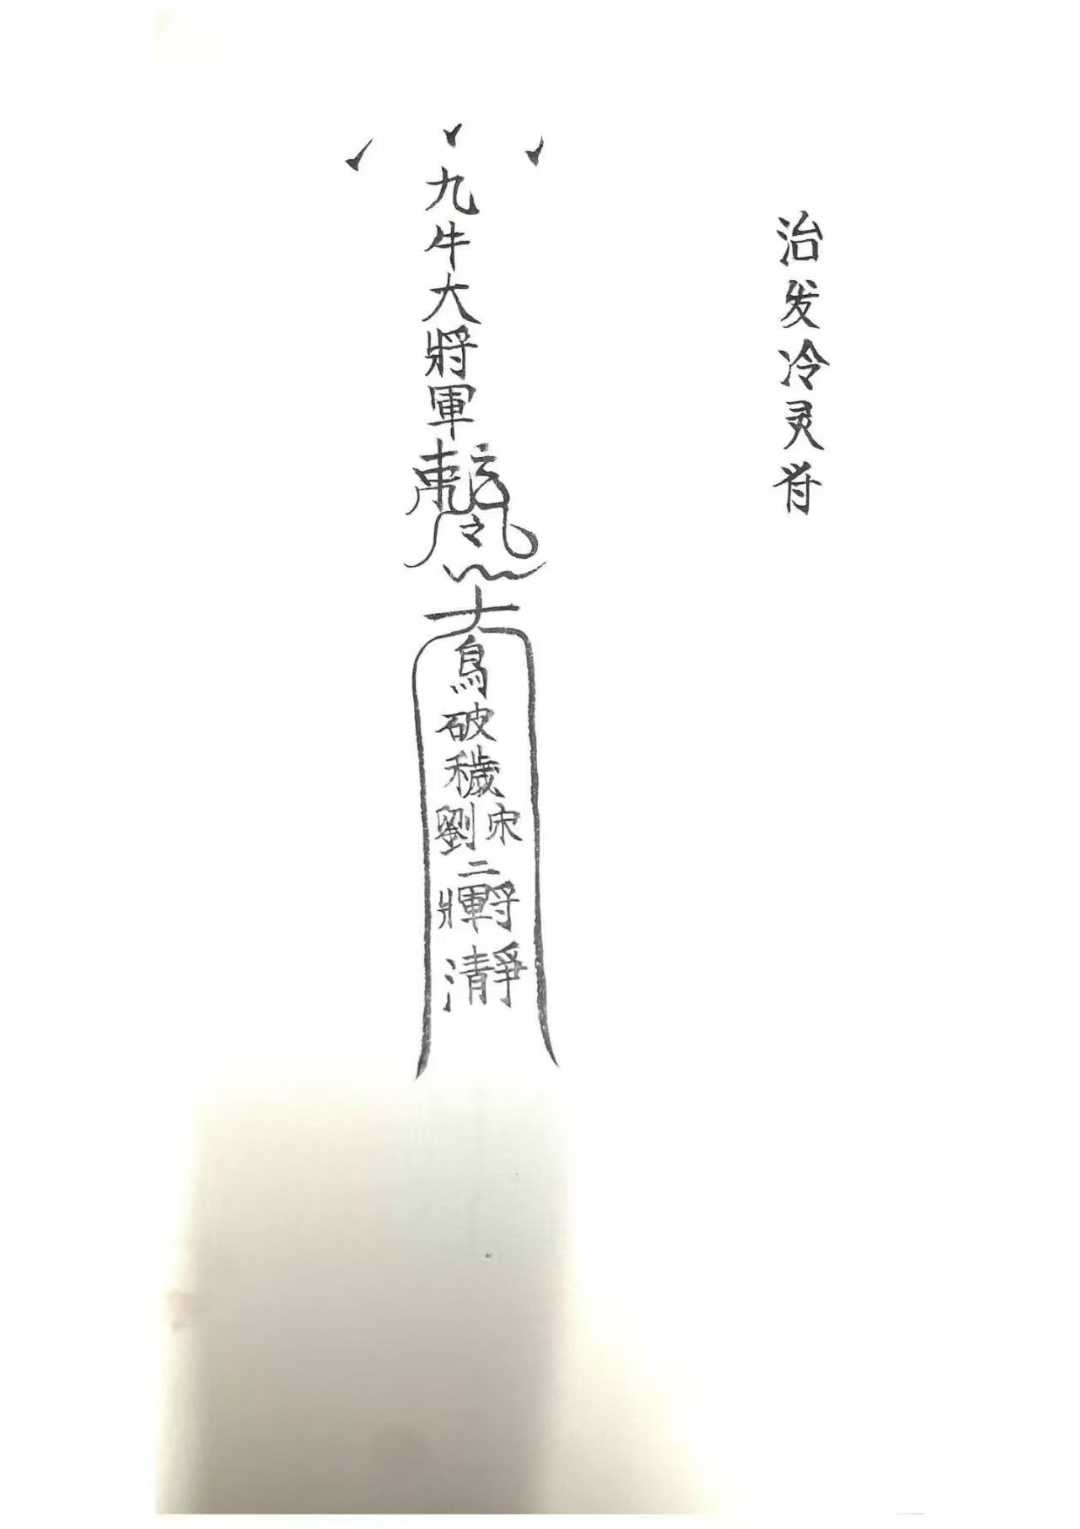 治发冷灵符
九牛大將軍
鳥
破穢
劉宋
二
將軍
清靜